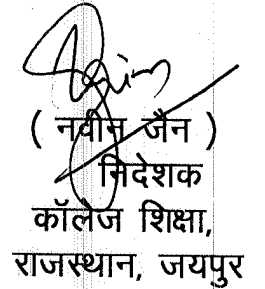 ( नवीन जैन )
निदेशक
कॉलेज शिक्षा,
राजस्थान, जयपुर